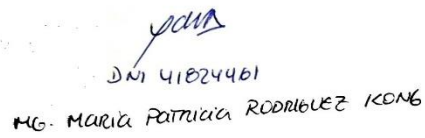 DNI 41824461
MG. MARIA PATRICIA RODRIGUEZ KONG